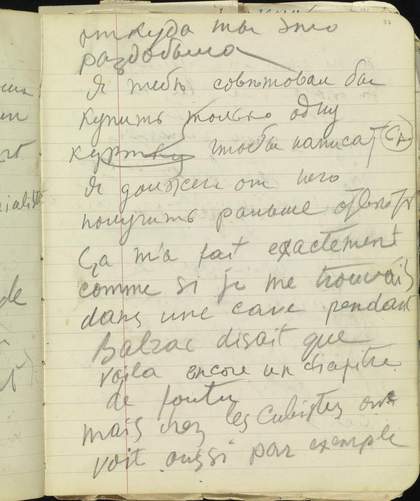 откуда ты это
раздобыла
Я тебѣ совѣтовал бы
купить только одну
куртку чтобы написат
Я должен от него
получить раньше отвѣт
Ça m'a fait exactement
comme si je me trouvais
dans une cave pendant
Balzac disait que
voila encore un chapitre
de foutu
mais chez les Cubistes on
voit aussi par exemple